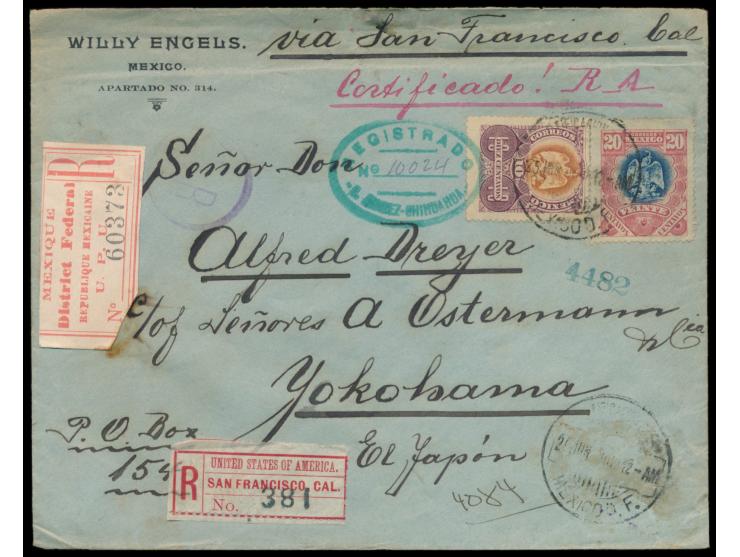 WILLY ENGELS.
MEXICO.
APARTADO NO. 314.
via San Francisco Cal
Certificado! R A
REGISTRADO
No 10024
CORREOS
MEXICO
20 20
VEINTE
CENTAVOS CENTAVOS
R
MEXIQUE
District Federal
REPUBLIQUE MEXICAINE
U. P. U.
No 60373
D
Señor Don
Alfred Dreyer
4482
c/of Señores A Ostermann
& Cia
Yokohama
El Japón
P. O. Box
154
R
UNITED STATES OF AMERICA.
SAN FRANCISCO, CAL.
No. 381
4084
12-AM
MEXICO D. F.